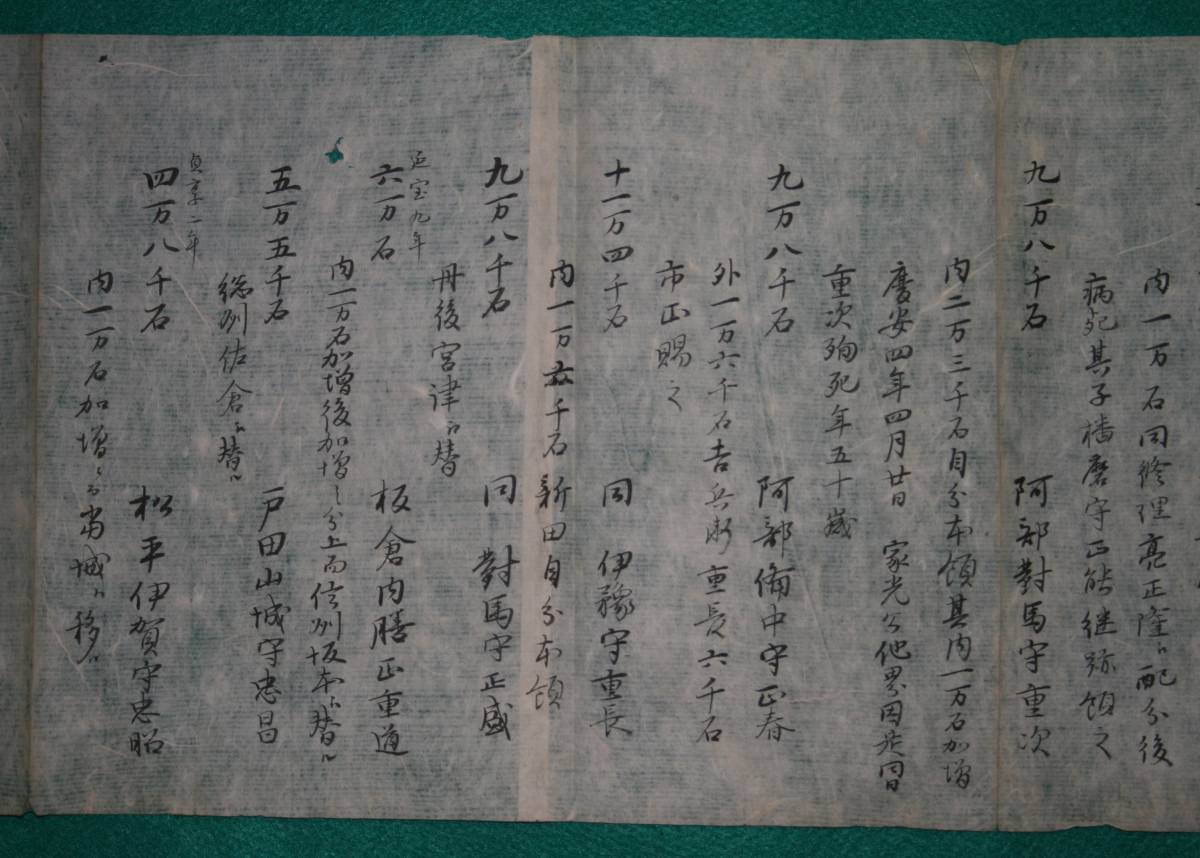 内一万石同修理亮正隆ヘ配分後
病死其子播磨守正能継跡領之
九万八千石 阿部對馬守重次
内二万三千石自分本領其内一万石加増
慶安四年四月廿日 家光公他界因是同日
重次殉死年五十歳
九万八千石 阿部備中守正春
外一万六千石吉兵衛重長六千石
市正賜之
十一万四千石 同 伊豫守重長
内一万六千石新田自分本領
九万八千石 同 對馬守正盛
丹後宮津ヘ替
延宝九年
六万石 板倉内膳正重道
内一万石加増後加増之分上而信州坂本ヘ替ル
五万五千石 戸田山城守忠昌
総州佐倉ヘ替ル
貞享一年
四万八千石 松平伊賀守忠昭
内一万石加増ニ而當城ヘ移ル